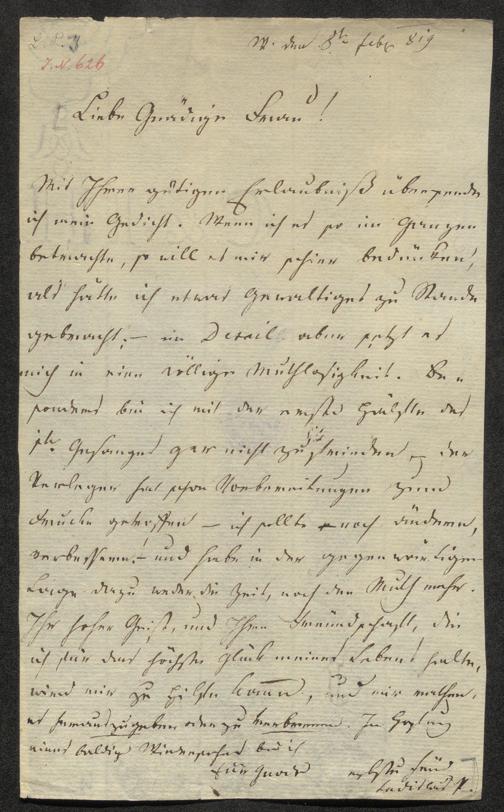 J.N. 626
W. den 8t Febr 819
Liebe Gnädige Frau!
Mit Ihrer gütigen Erlaubniß übersende
ich mein Gedicht. Wenn ich es so im Ganzen
betrachte, so will es mir schier bedünken,
als hätte ich etwas Gewaltiges zu Stande
gebracht; – im Detail aber setzt es
mich in eine völlige Muthlosigkeit. Be=
sonders bin ich mit der ersten Hälfte des
Gesanges gar nicht zufrieden, der
Verleger hat schon Vorbereitungen zum
Drucke getroffen – ich sollte noch ändern,
verbessern! – und habe in der gegenwärtigen
Lage dazu weder die Zeit, noch den Muth mehr.
Ihr hoher Geist, und Ihre Freundschaft, die
ich für das höchste Glück meines Lebens halte,
wird mir zu Hilfe kommen, und mir rathen,
es herauszugeben oder zu verbrennen. In Hoffnung
eines baldigen Wiedersehens bin ich
Euer Gnaden
Ladislaus P.